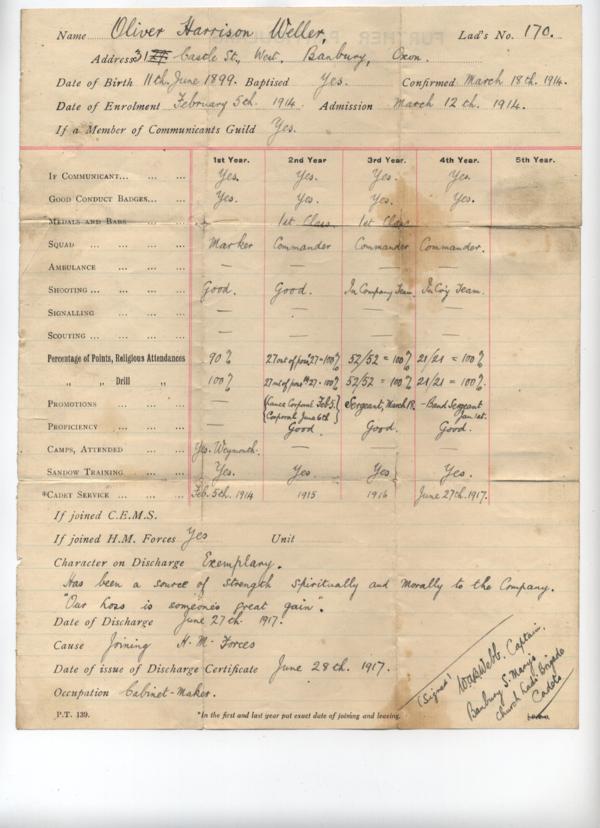 Name Oliver Harrison Weller, Lad's No. 170.
Address 31 Castle St., West, Banbury, Oxon.
Date of Birth 11th June 1899. Baptised Yes. Confirmed March 18th. 1914.
Date of Enrolment February 5th. 1914. Admission March 12th. 1914.
If a Member of Communicants Guild Yes.
1st Year. 2nd Year 3rd Year. 4th Year. 5th Year.
If Communicant... ... ... Yes. Yes. Yes. Yes.
Good Conduct Badges... ... Yes. Yes. Yes. Yes.
Medals and Bars ... ... — 1st Class. 1st Class.
Squad ... ... ... ... Marker Commander Commander Commander.
Ambulance ... ... ... — — — —
Shooting ... ... ... ... Good. Good. In Company Team. In Coy Team.
Signalling ... ... ... — — — —
Scouting ... ... ... ... — — — —
Percentage of Points, Religious Attendances 90% 27 out of poss. 27 = 100% 52/52 = 100% 21/21 = 100%
„ „ Drill „ 100% 27 out of poss. 27 = 100% 52/52 = 100% 21/21 = 100%.
Promotions ... ... ... — {Lance Corporal Feb 5. Corporal June 6th} Sergeant, March 19. - Band Sergeant Jan 1st.
Proficiency ... ... ... — Good. Good. Good.
Camps, Attended ... ... Yes. Weymouth. — — —
Sandow Training ... ... Yes. Yes. Yes Yes.
*Cadet Service ... ... ... Feb. 5th. 1914 1915 1916 June 27th. 1917.
If joined C.E.M.S.
If joined H.M. Forces Yes Unit
Character on Discharge Exemplary.
Has been a source of strength spiritually and morally to the Company.
"Our loss is someone's great gain".
Date of Discharge June 27th. 1917.
Cause Joining H.M. Forces
Date of issue of Discharge Certificate June 28th. 1917.
Occupation Cabinet-Maker.
(Signed) Webb, Captain.
Banbury S. Mary's
Church Lads' Brigade
Cadets
P.T. 139. *In the first and last year put exact date of joining and leaving.